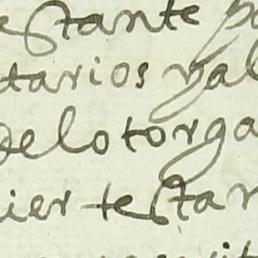 estante p
tarios y al
delotorga
ier testar